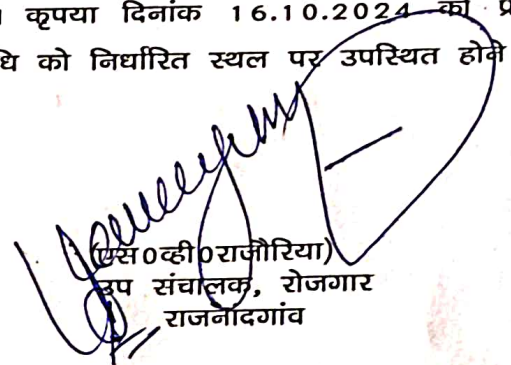 कृपया दिनांक 16.10.2024 को प्र
धि को निर्धारित स्थल पर उपस्थित होने
(एस०व्ही०राजौरिया)
उप संचालक, रोजगार
राजनांदगांव